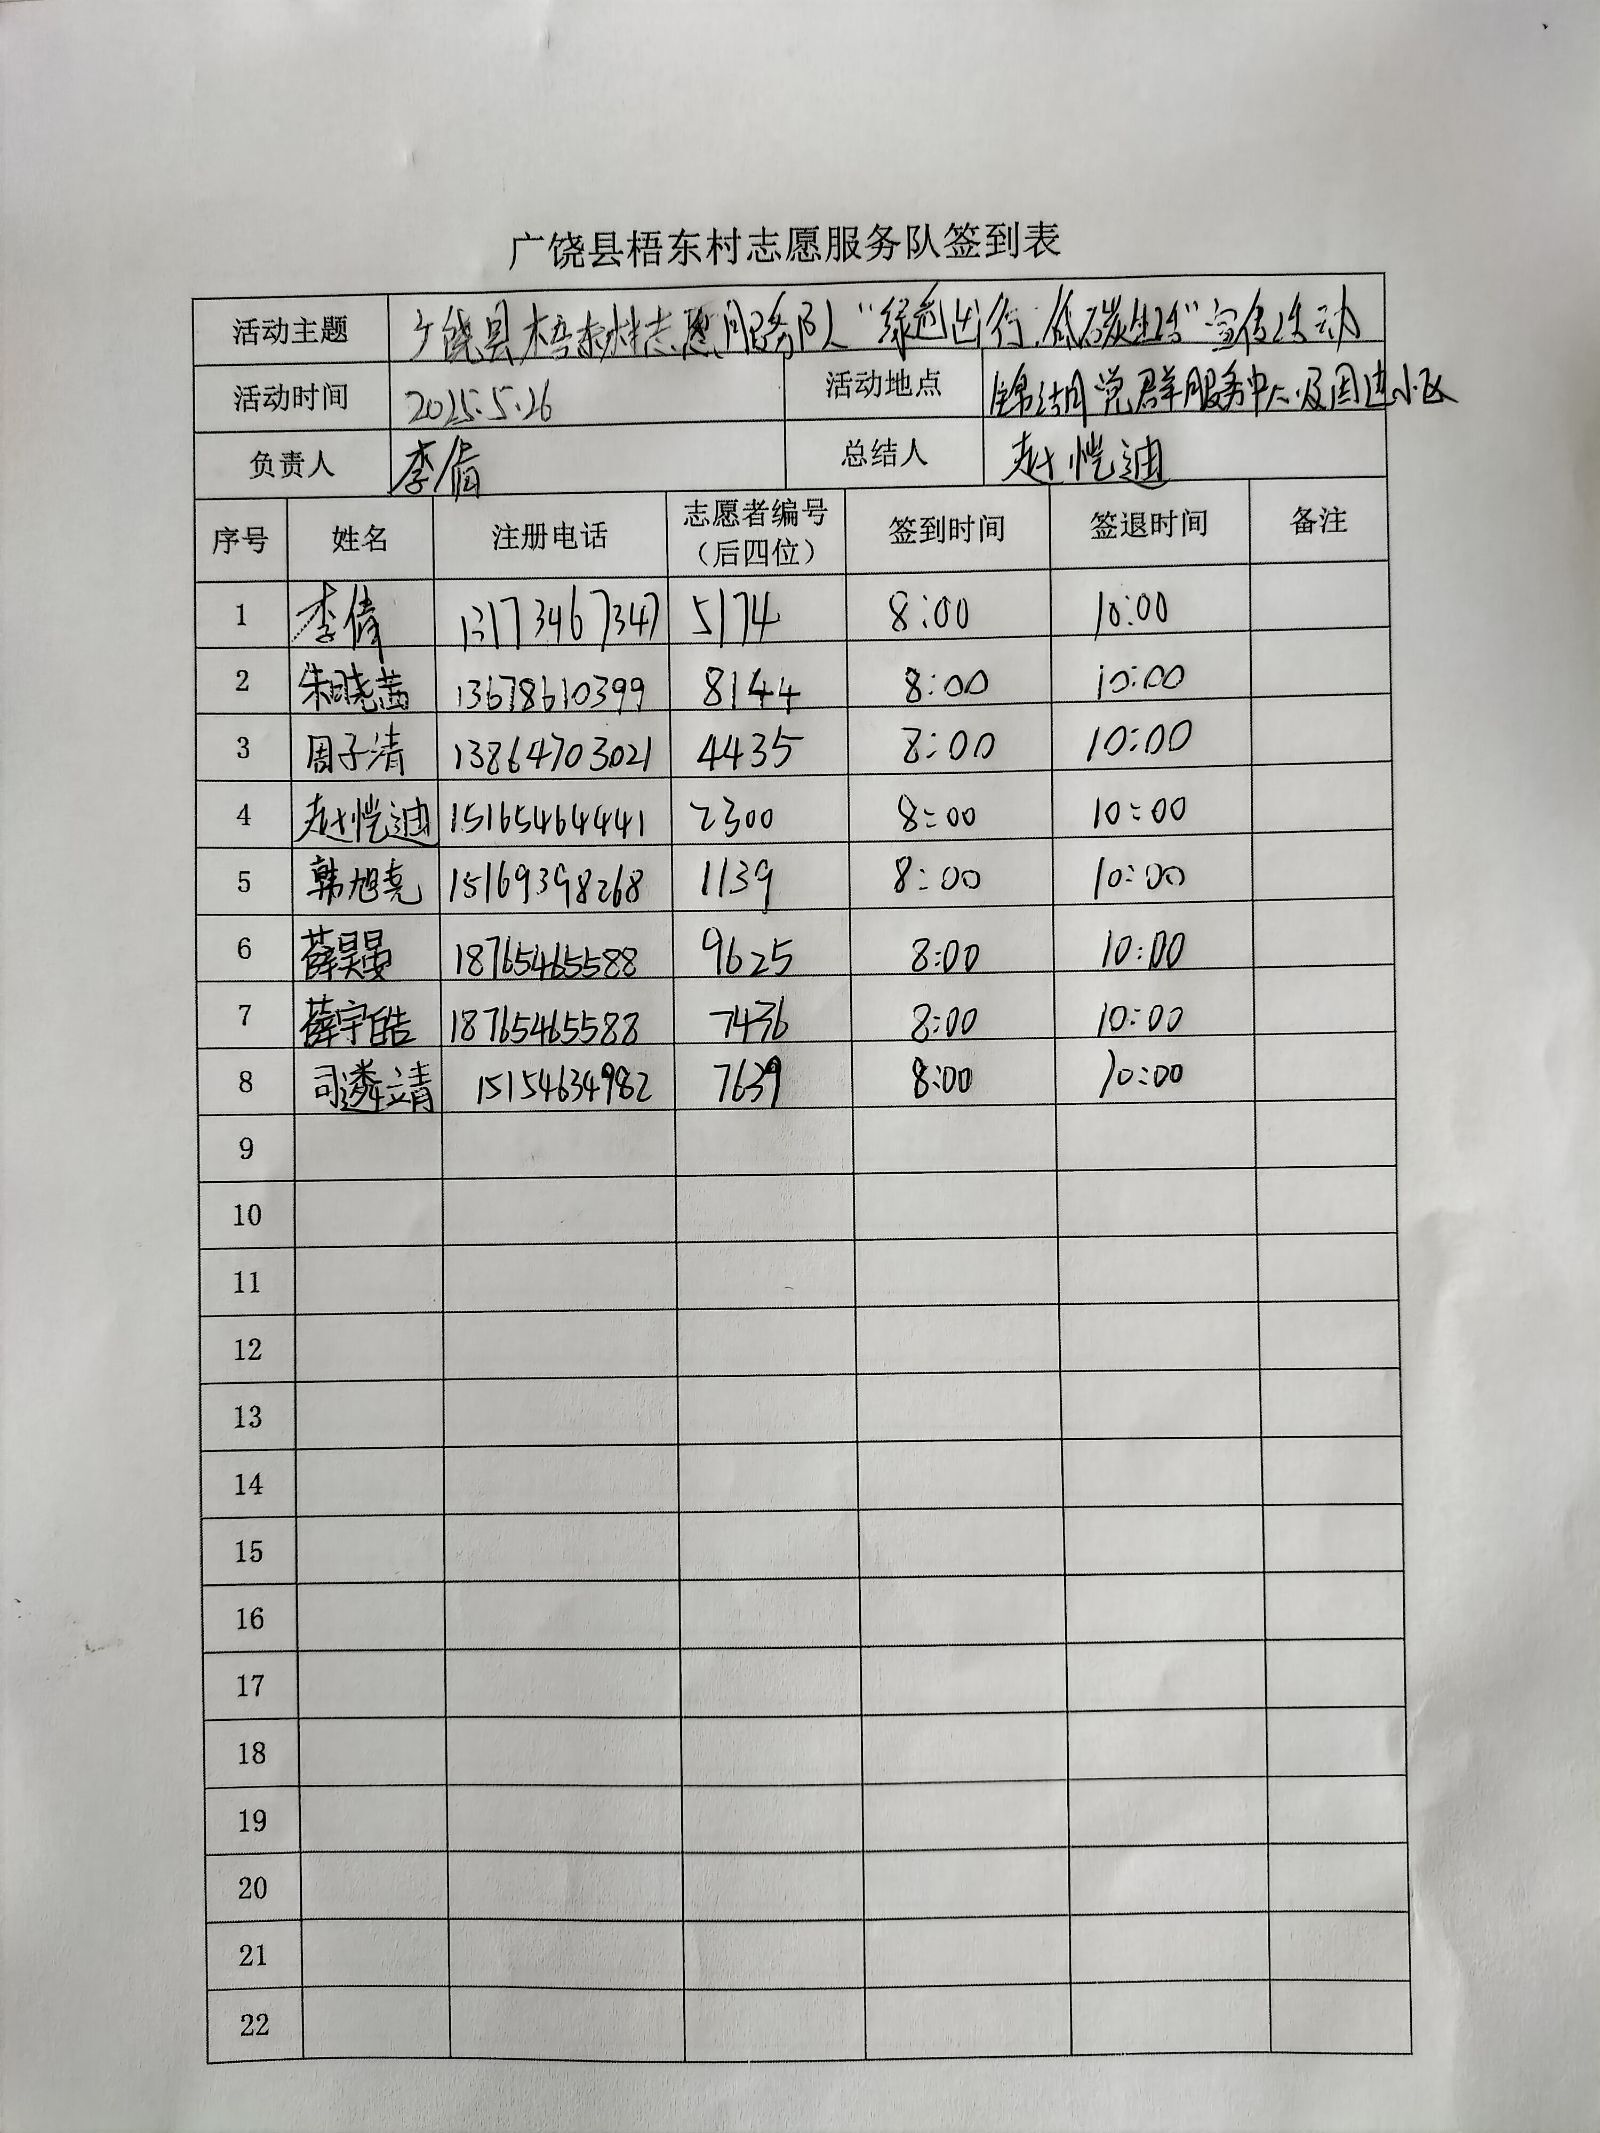 广饶县梧东村志愿服务队签到表
活动主题 广饶县梧东村志愿服务队“绿道出行,低碳生活”宣传活动
活动时间 2025.5.26 活动地点 锦湖党群服务中心及周边小区
负责人 李倩 总结人 赵恺迪
序号 姓名 注册电话 志愿者编号（后四位） 签到时间 签退时间 备注
1 李倩 13173467347 5174 8:00 10:00
2 朱晓茜 13678610399 8144 8:00 10:00
3 周子清 13864703021 4435 8:00 10:00
4 赵恺迪 15165464441 2300 8:00 10:00
5 韩旭尧 15169398268 1139 8:00 10:00
6 薛昊晏 18765465588 9625 8:00 10:00
7 薛宇皓 18765465588 7436 8:00 10:00
8 司遴靖 15154634982 7639 8:00 10:00
9
10
11
12
13
14
15
16
17
18
19
20
21
22